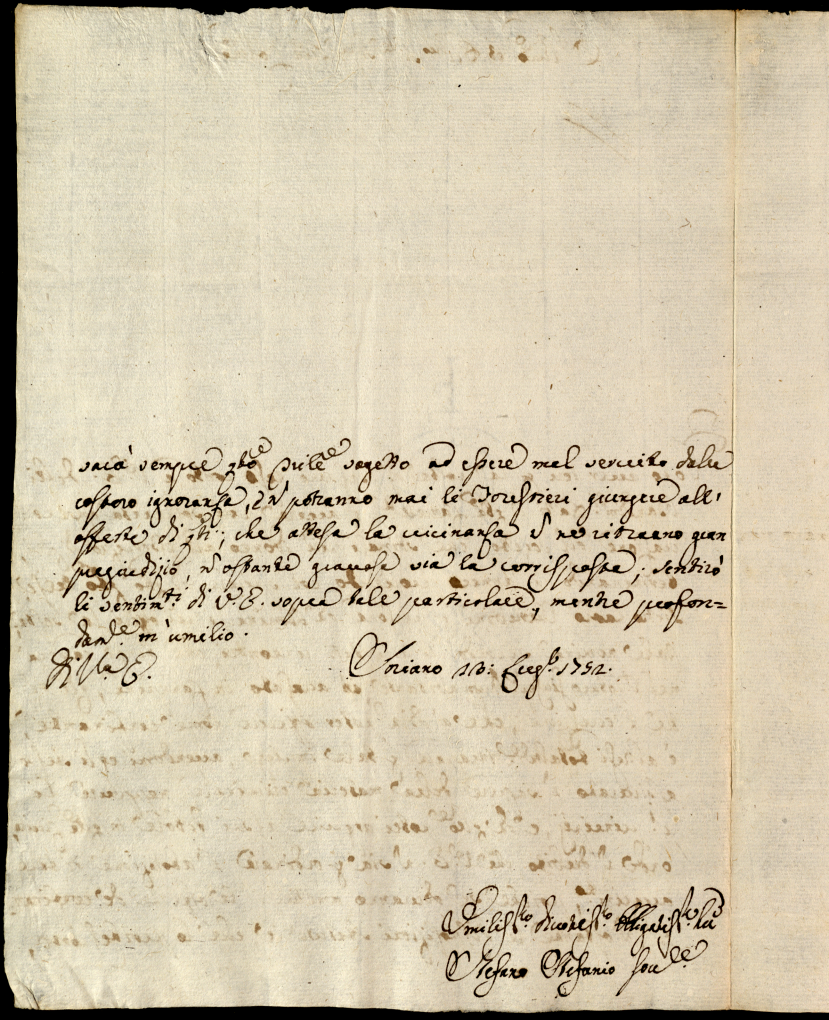 sarà sempre sogetto ad essere mal servito dalla
costoro ignoranza, e n̄ potranno mai li Forestieri giungere all'
offerte di q̄ti, che attesa la vicinanza n̄ ne ritraano gran
pregiudizio, n̄ ostante gravosa sia la corrisposta; sentirò
li sentim.ti di V.E. sopra tale particolare, mentre profon=
dam.e m'umilio.
Di V.ra E. Soriano 13: 1752.
Umiliss.mo Divotiss.mo Obligatiss.mo
Stefano Stefanio